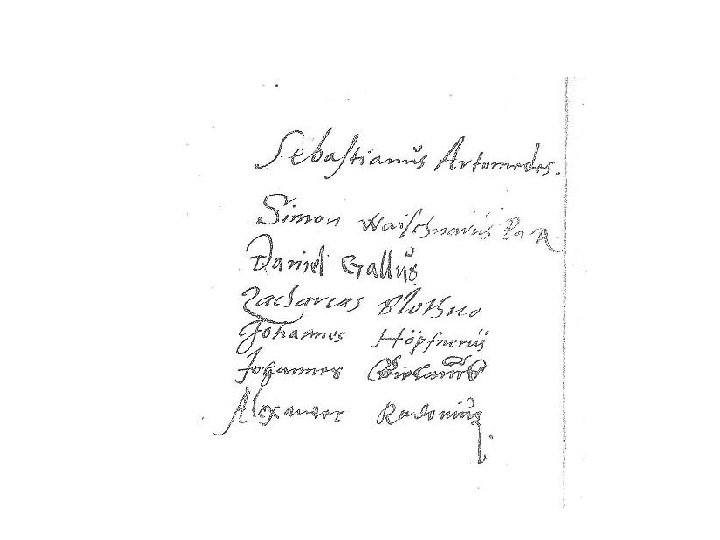 Sebastianŭs Artomedes.
Simon Waischnarŭs
Daniel Gallŭs
Zacharias Blothno
Johannes Höpfnerŭs
Johannes
Alexander Radoniŭs